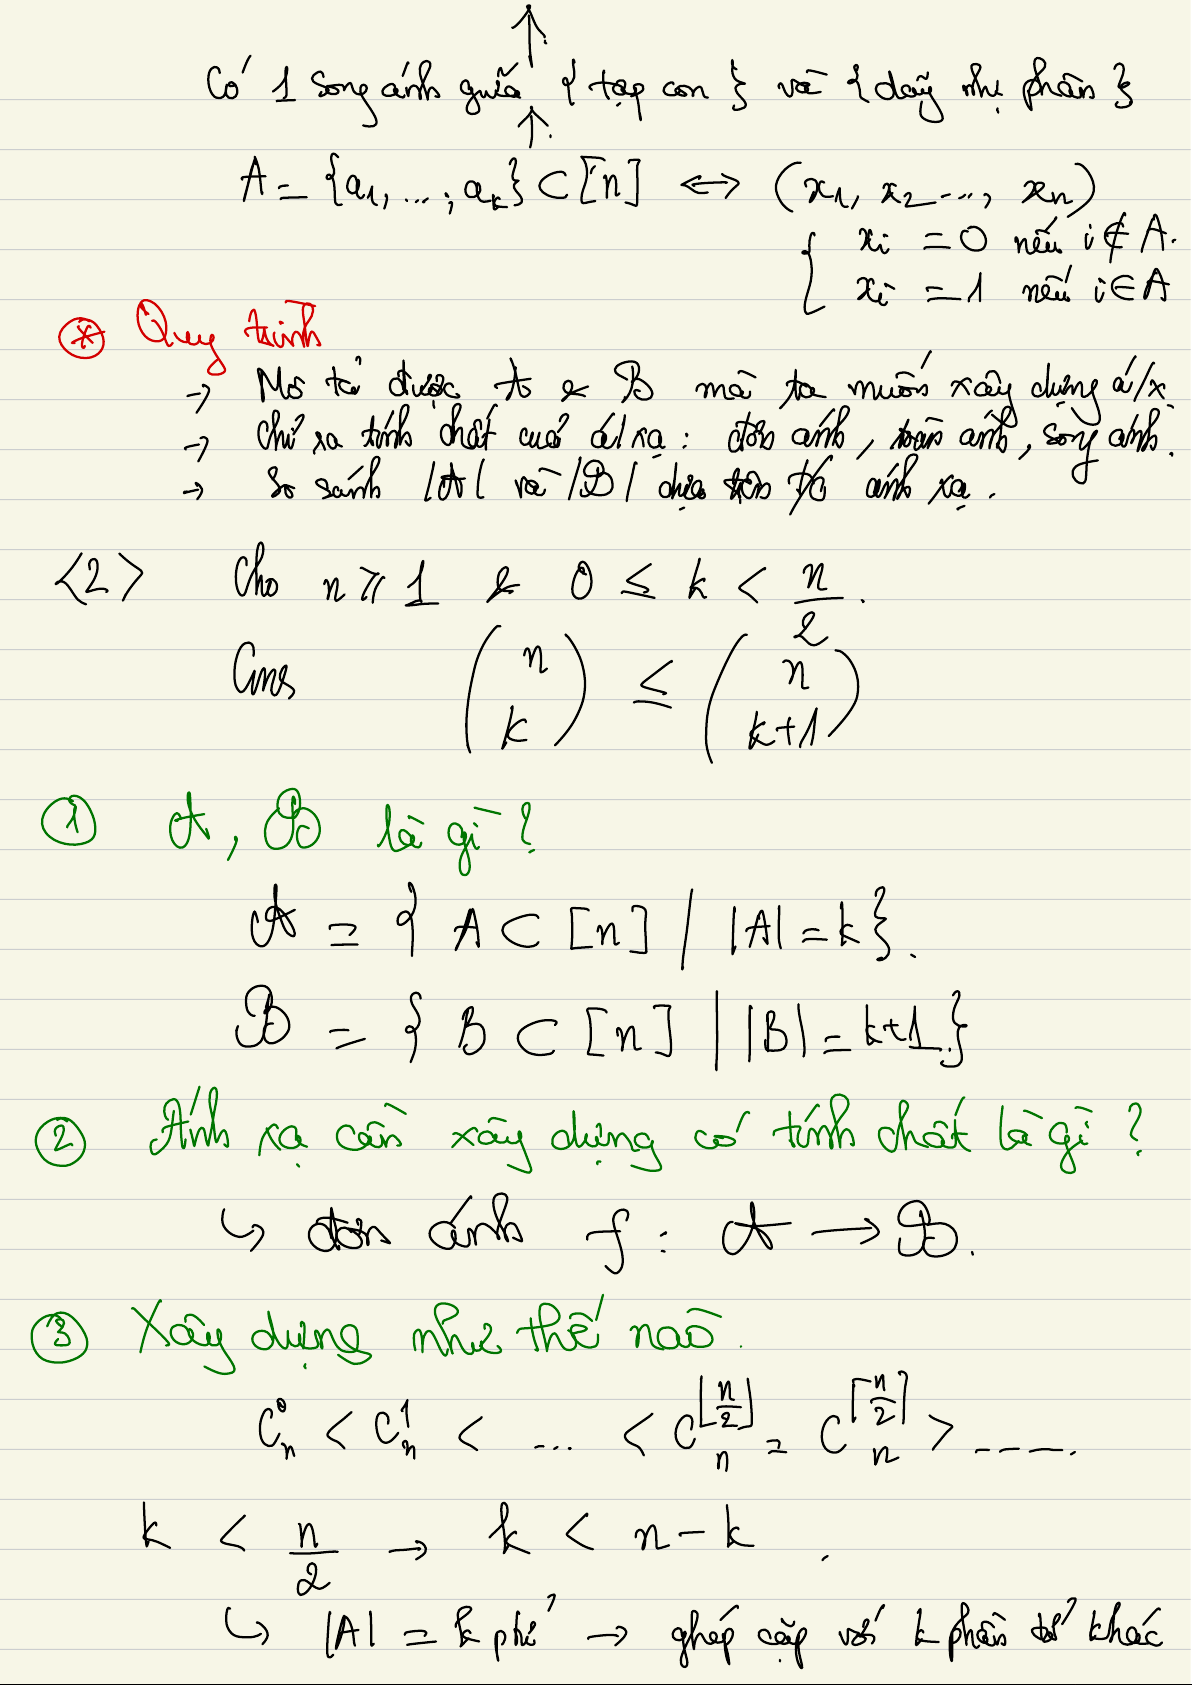 Có 1 song ánh giữa { tập con } và { dãy nhị phân }
A = {a₁, ..., aₖ} ⊂ [n] ↔ (x₁, x₂ ..., xₙ)
{ xᵢ = 0 nếu i ∉ A.
xᵢ = 1 nếu i ∈ A
(*) Quy trình
→ Mô tả được A & B mà ta muốn xây dựng á/x.
→ Chỉ ra tính chất của á/xạ: đơn ánh, toàn ánh, song ánh.
→ So sánh |A| và |B| dựa trên t/c ánh xạ.
<2> Cho n ⩾ 1 & 0 ≤ k < n/2.
Cmr (n k) ≤ (n k+1)
① A, B là gì?
A = { A ⊂ [n] | |A| = k }.
B = { B ⊂ [n] | |B| = k+1.}
② Ánh xạ cần xây dựng có tính chất là gì?
↳ đơn ánh f: A → B.
③ Xây dựng như thế nào.
Cₙ⁰ < Cₙ¹ < ... < Cₙ^⌊n/2⌋ = Cₙ^⌈n/2⌉ > .....
k < n/2 → k < n - k.
↳ |A| = k ptử → ghép cặp với k phần tử khác